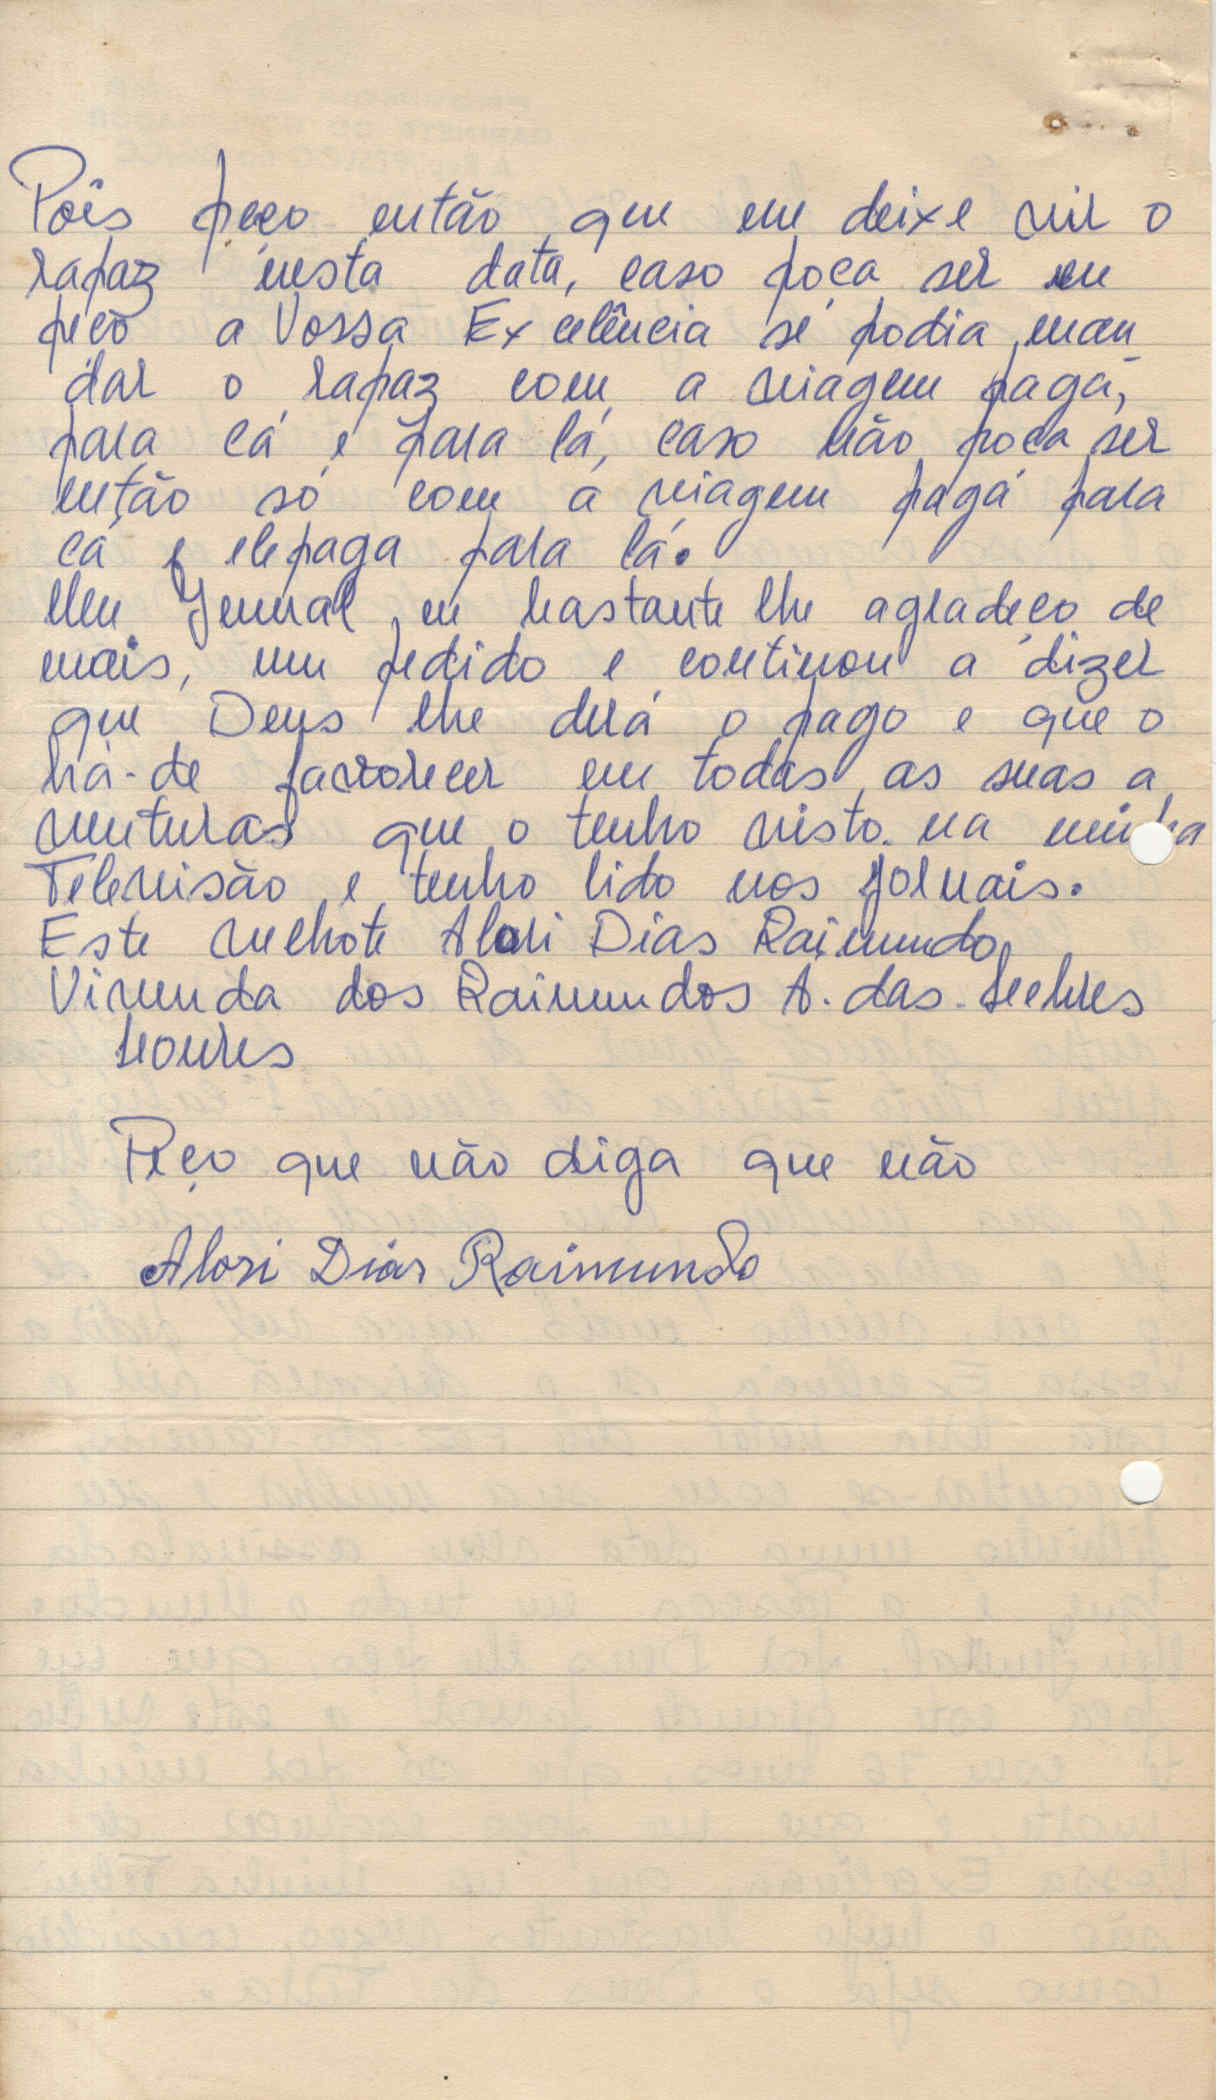 Pois peço então que me deixe vir o
rapaz nesta data, caso poça ser eu
peço a Vossa Excelência se podia man
dar o rapaz com a viagem paga,
para cá e para lá, caso não poça ser
então só com a viagem paga para
cá e ele paga para lá.
Meu Jenural eu bastante lhe agradeço de
mais, meu pedido e continou a dizer
que Deus lhe derá o pago e que o
há-de favrorecer em todas as suas a
venturas que o tenho visto na minha
Televisão e tenho lido nos jornais.
Este velhote Alosi Dias Raimundo
Vivenda dos Raimundos A. das Lebres
Loures
Peço que não diga que não
Alosi Dias Raimundo